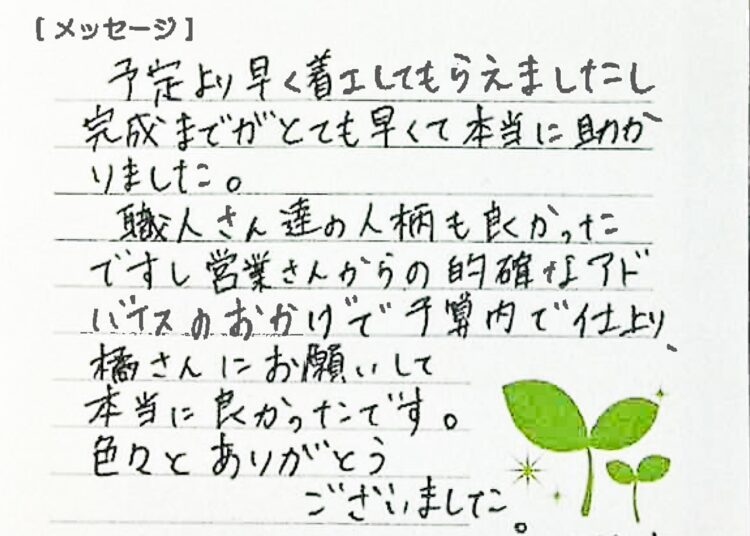 [メッセージ]
予定より早く着工してもらえましたし
完成までがとても早くて本当に助か
りました。
職人さん達の人柄も良くかった
ですし営業さんからの的確なアド
バイスのおかげで予算内で仕上り、
橘さんにお願いして
本当に良かったです。
色々とありがとう
ございました。